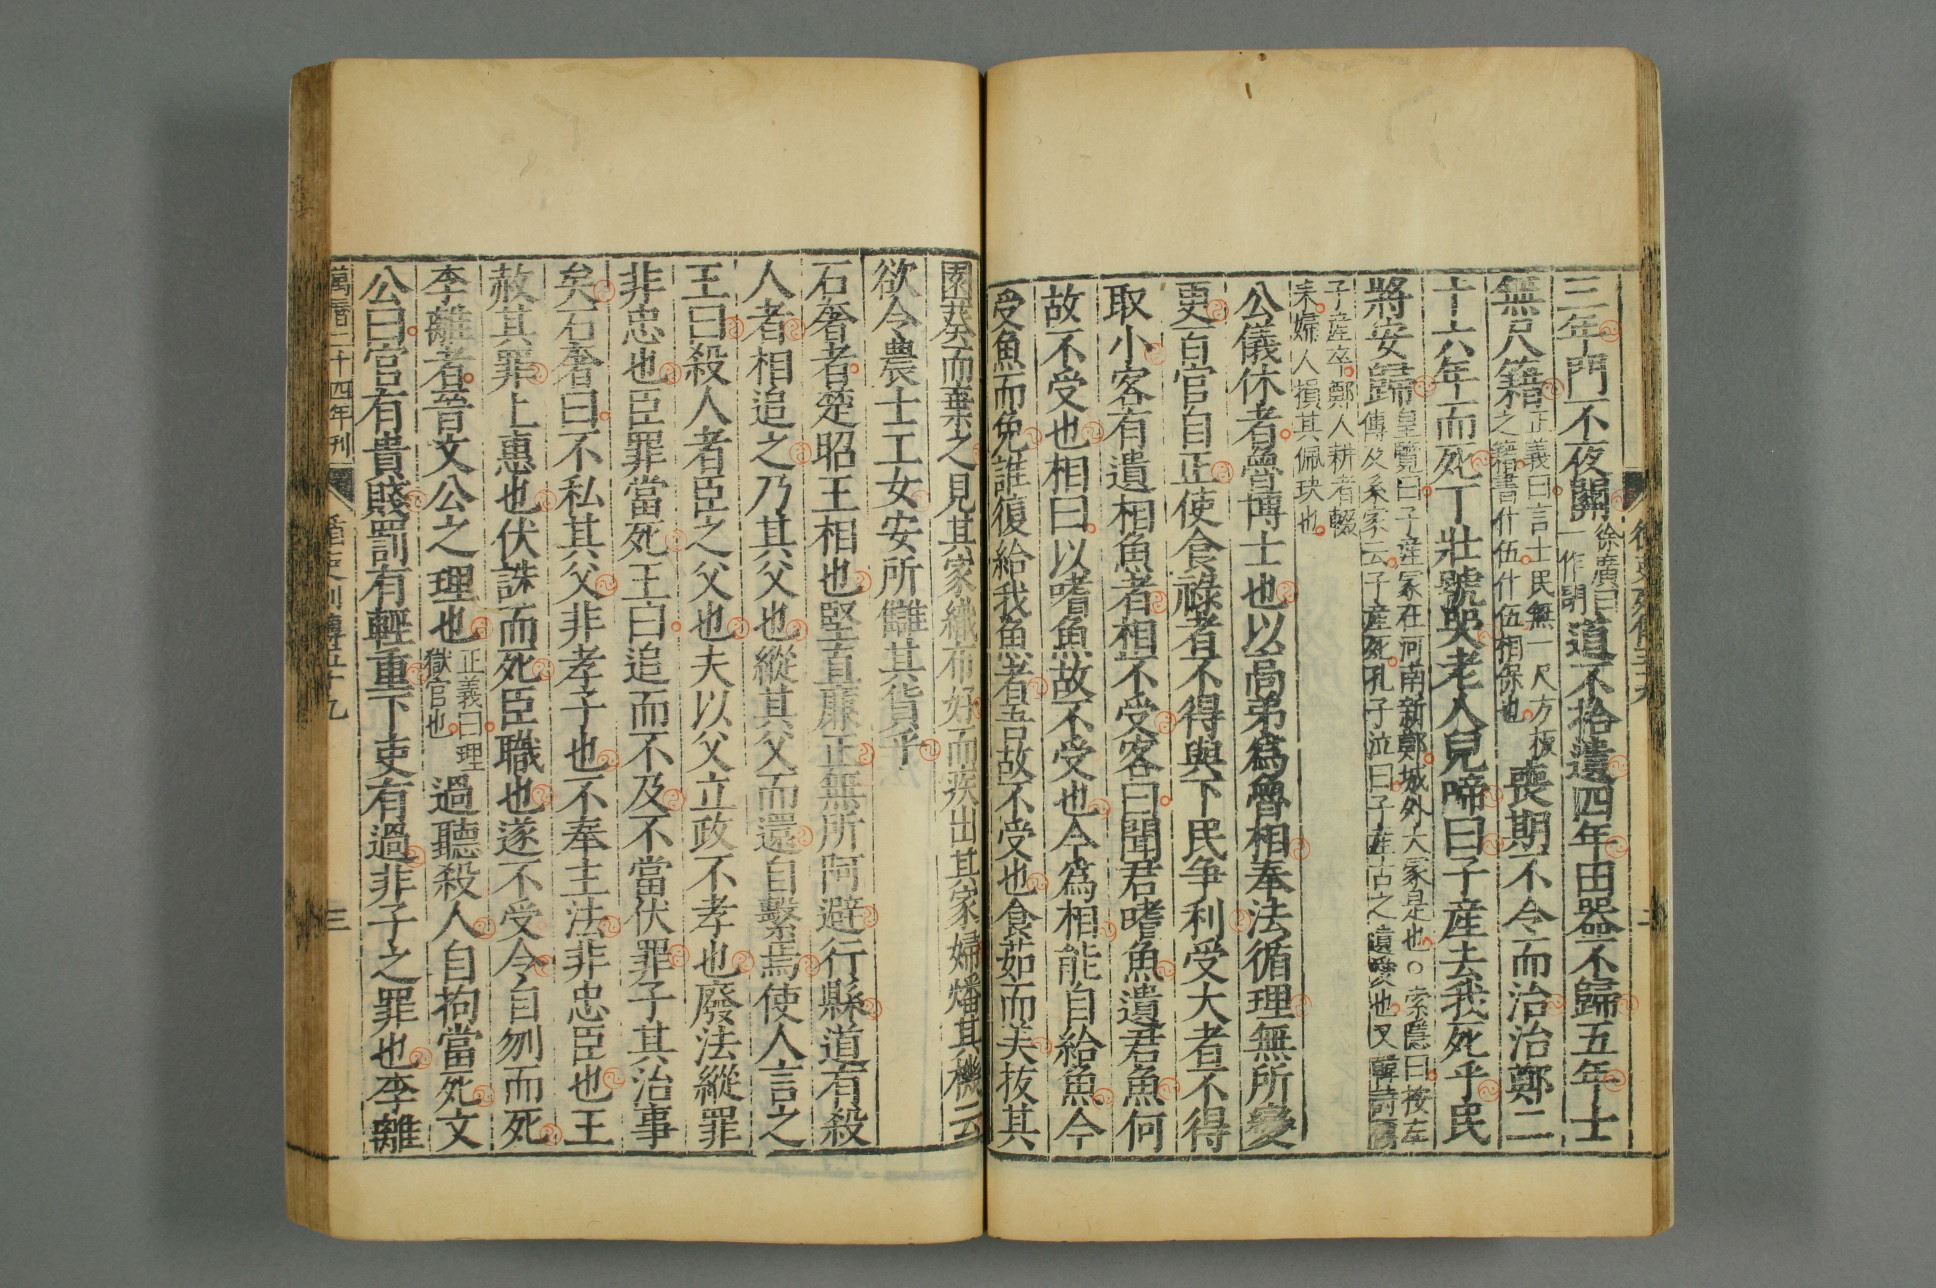 三年門不夜關徐廣曰一作閉道不拾遺四年田器不歸五年士
無尺籍正義曰言士民無一尺方板之籍書什伍什伍相保也喪期不令而治治鄭二
十六年而死丁壯號哭老人兒啼曰子產去我死乎民
將安歸皇覽曰子產冢在河南新鄭城外大冢是也○索隱曰按左傳及系家云子產死孔子泣曰子產古之遺愛也又韓詩稱
子產卒鄭人耕者輟耒婦人損其佩玦也
公儀休者魯博士也以高弟為魯相奉法循理無所變
更百官自正使食祿者不得與下民爭利受大者不得
取小客有遺相魚者相不受客曰聞君嗜魚遺君魚何
故不受也相曰以嗜魚故不受也今為相能自給魚今
受魚而免誰復給我魚者吾故不受也食茹而美拔其
園葵而棄之見其家織布好而疾出其家婦燔其機云
欲令農士工女安所讎其貨乎
石奢者楚昭王相也堅直廉正無所阿避行縣道有殺
人者相追之乃其父也縱其父而還自繫焉使人言之
王曰殺人者臣之父也夫以父立政不孝也廢法縱罪
非忠也臣罪當死王曰追而不及不當伏罪子其治事
矣石奢曰不私其父非孝子也不奉主法非忠臣也王
赦其罪上惠也伏誅而死臣職也遂不受令自刎而死
李離者晉文公之理也正義曰理獄官也過聽殺人自拘當死文
公曰官有貴賤罰有輕重下吏有過非子之罪也李離
萬曆二十四年刊 循吏列傳五十九 三